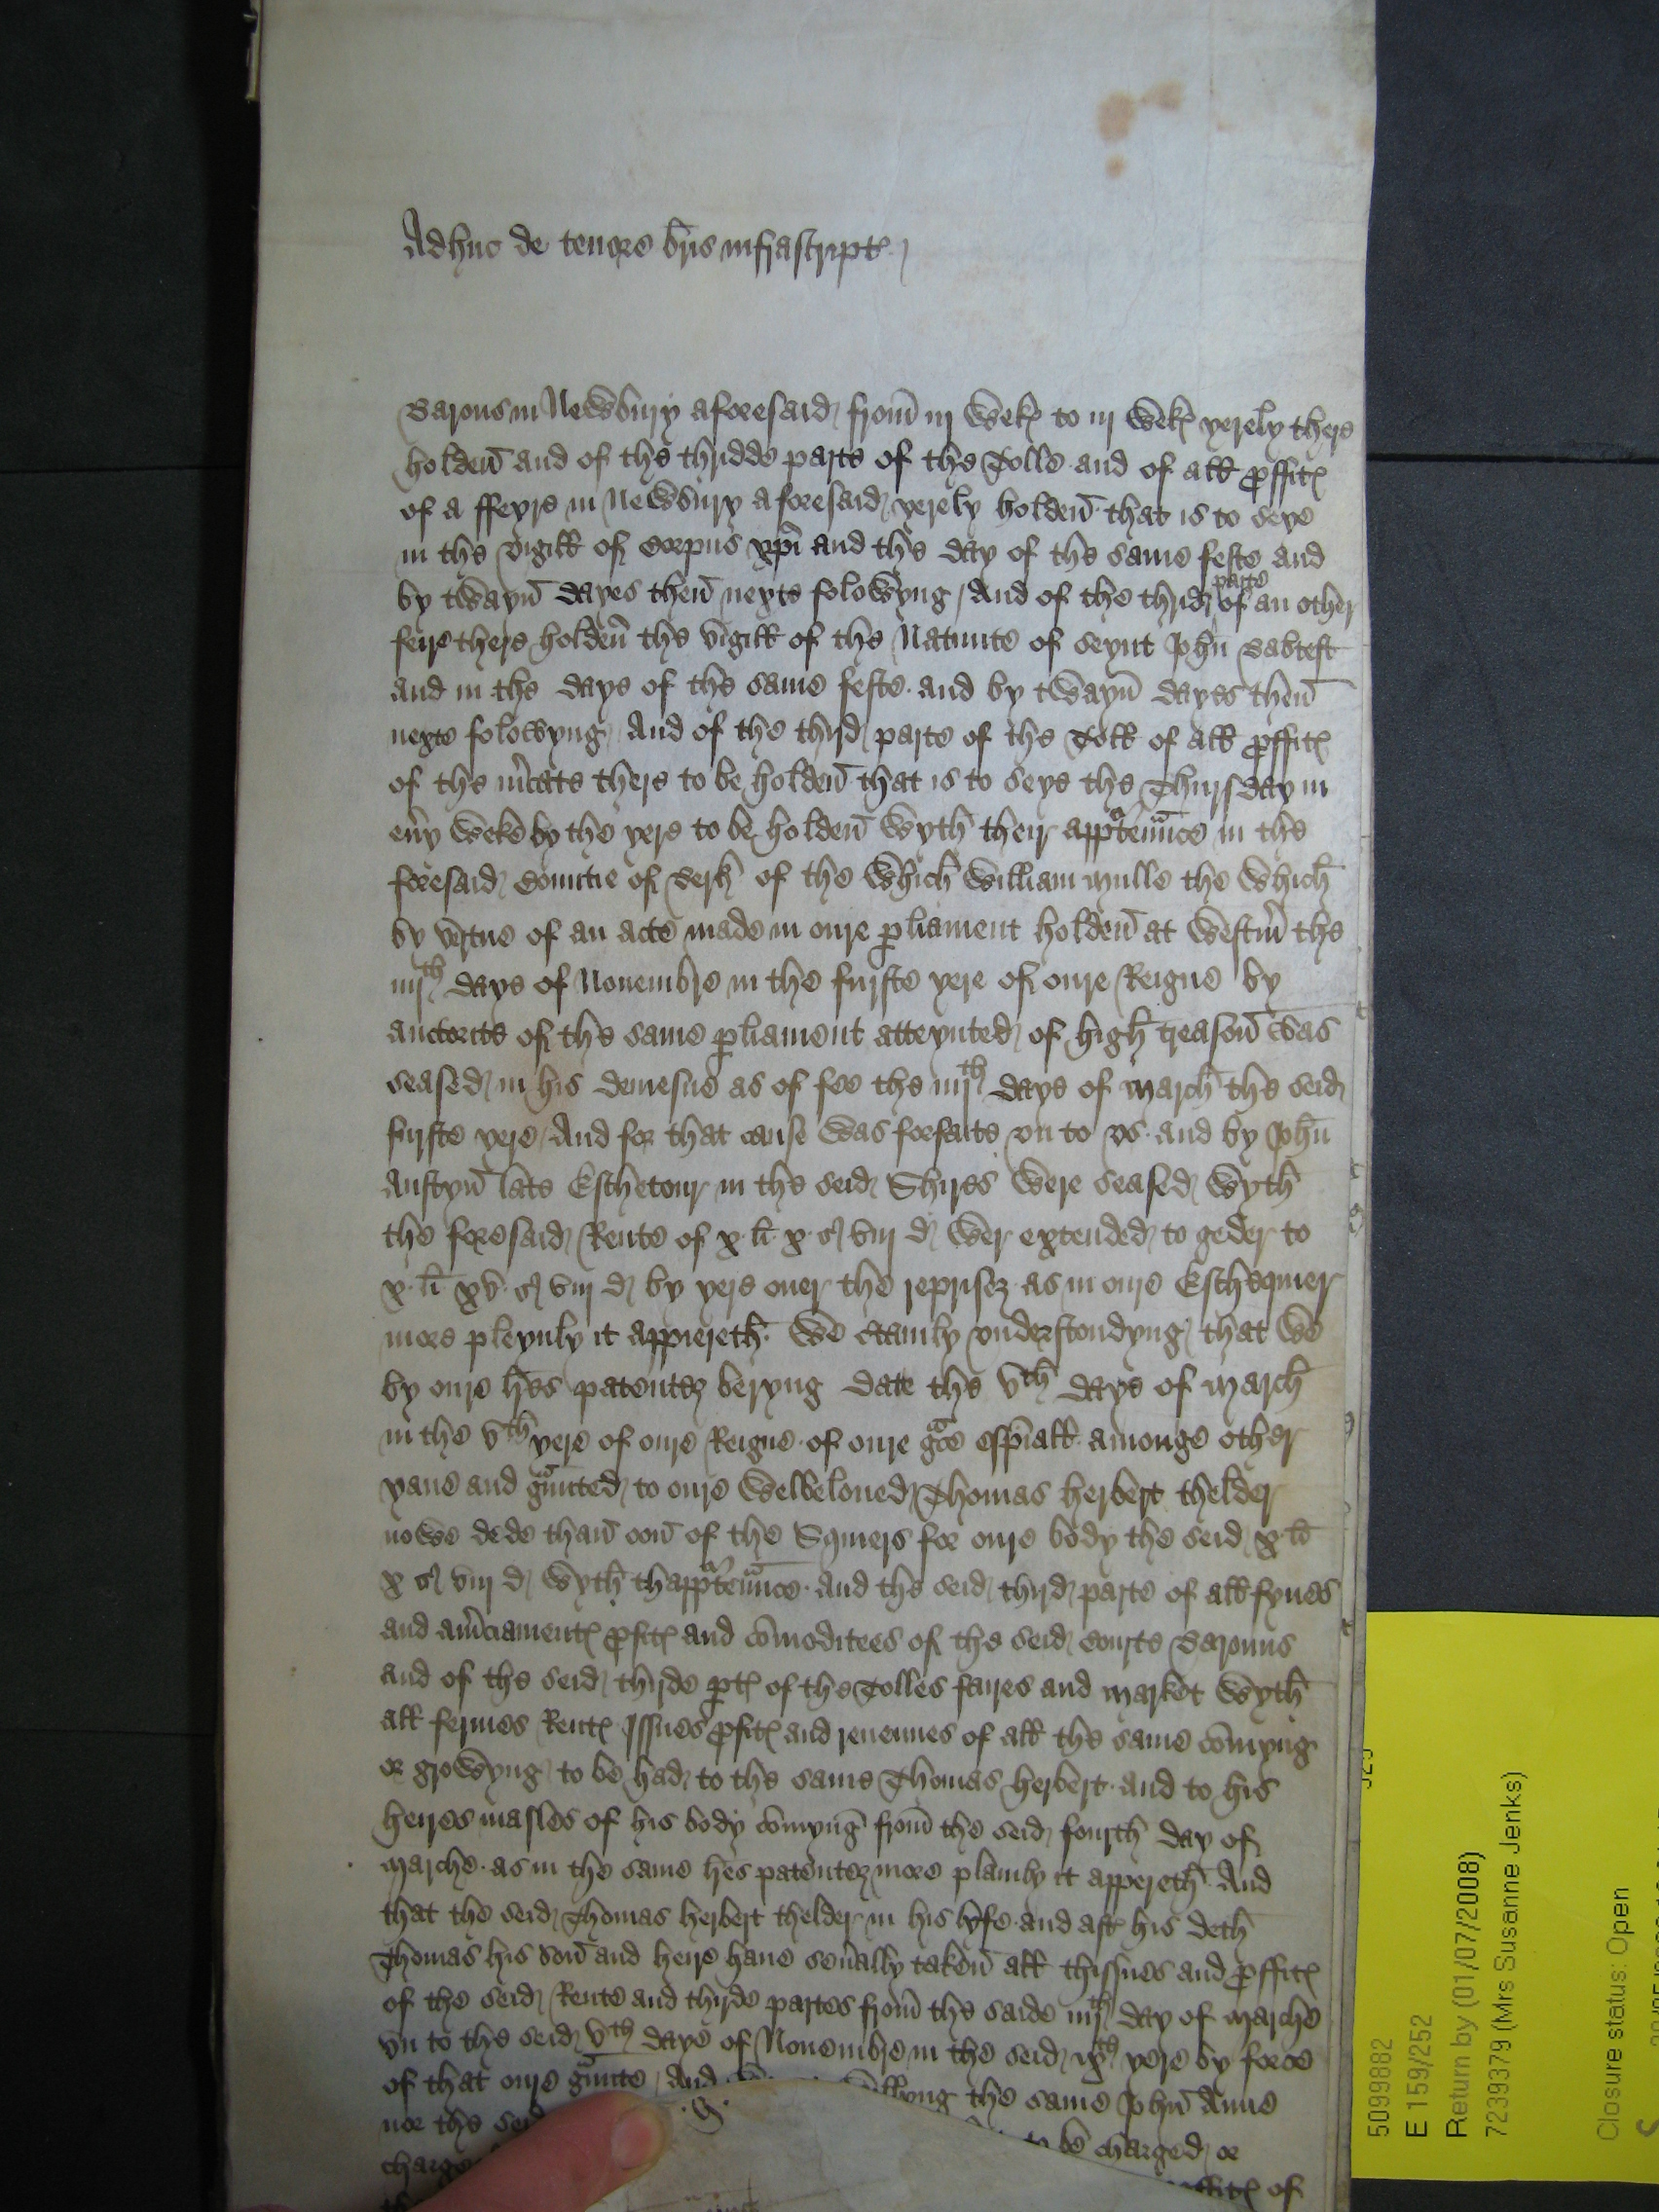 Adhuc de tenore br̄is infrascript
Barons in Newbury aforesaid from iij Wek to iij Wek yerely there
holden̄ and of the thridde parte of the Tolle and of all ꝓffit
of a ffeyre in Newbury aforesaid yerely holden̄ that is to seye
in the vigill of Corpus xp̄i and the day of the same feste and
by twayn̄ dayes then̄ nexte folowyng / And of the thrid parte of an other
feire there holden̄ the vigill of the Natiuite of seynt Joh̄n Babtest
and in the daye of the same feste and by twayn̄ dayes then̄
nexte folowyng And of the thyrd parte of the Toll of all ꝓffit
of the m̄cate there to be holden̄ that is to seye the Thursday in
eūy Weke by the yere to be holden̄ Wyth their appᵃten̄nce in the
foresaid Countie of Berk of the Which William Mulle the Which
by v̄tue of an acte made in oure ꝑliament holden̄ at Westm̄ the
iiijth daye of Nouembre in the furste yere of oure Reigne by
auctorite of the same ꝑliament atteynted of high treason̄ was
seased in his demesne as of fee the iiijth daye of March the seid
furste yere / And for that cause Was forfaite vn to vs and by Joh̄n
Austyn̄ late Eschetour in the seid Shire Were seased Wyth
the foresaid Rente of x li x s viij d Wer extended to geder to
x li xv s viij d by yere ouer the reprisez as in oure Eschequier
more pleynly it appiereth We c̄tainly vnderstondyng that We
by oure l̄res patentez beryng date the vth daye of March
in the vth yere of oure Reigne of oure gᵃce esp̄iall amonge other
yaue and gᵃunted to oure Welbeloued Thomas herbert thelder
nowe dede than̄ oon̄ of the Squiers for oure body the seid x li
x s viij d Wyth thappᵃten̄nce and the seid thyrd parte of all fynes
and am̄ciament ꝓfit and com̄oditees of the seid Courte Barouns
and of the seid thirde ꝑt of the Tolles faires and market Wyth
all fermes Rent Issues ꝓfit and reuenues of all the same com̄yng
or growyng to be had to the same Thomas herbert and to his
heires masles of his body com̄yng from̄ the seid fourth day of
Marche as in the same l̄res patentez more plainly it appereth And
that the seid Thomas herbert thelder in his lyfe and aft his deth
Thomas his son̄ and heire haue seūally taken̄ all thissues and ꝓffit
of the seid Rente and thirde partes from̄ the saide iiijth day of Marche
vn to the seid vth daye of Nouembre in the seid ixth yere by force
of that oure gᵃunte / And Willyng the same Joh̄n Anne
nor the seid to be charged or
of
5099882
E 159/252
Return by (01/07/2008)
7239379 (Mrs Susanne Jenks)
Closure status: Open